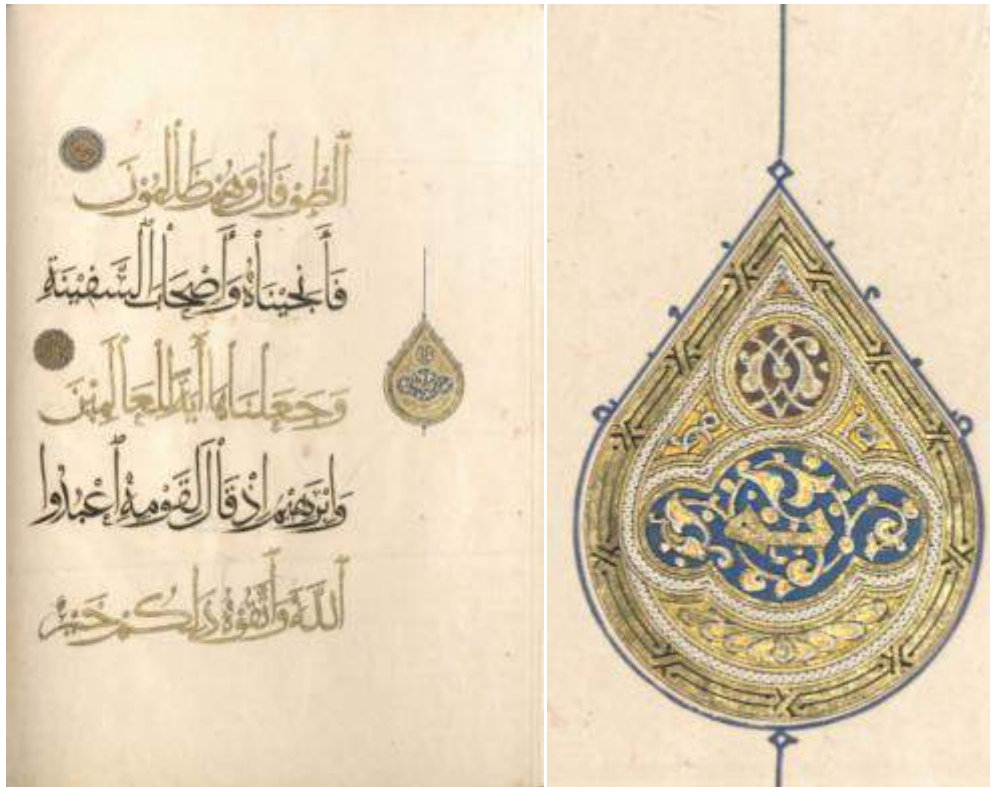 ٱلطُّوْفَانُ وَهُمْ ظَالِمُوْنَ
فَأَنْجَيْنَاهُ وَأَصْحَابَ السَّفِيْنَةِ
وَجَعَلْنَاهَا أَيَةً لِلْعَالَمِيْنَ
وَإِبْرَهِيْمَ إِذْ قَالَ لِقَوْمِهِ اعْبُدُوا
ٱللَّهَ وَٱتَّقُوْهُ ذَلِكُمْ خَيْرٌ